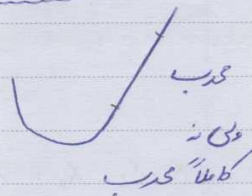 محدب
ولی نه
کاملاً محدب